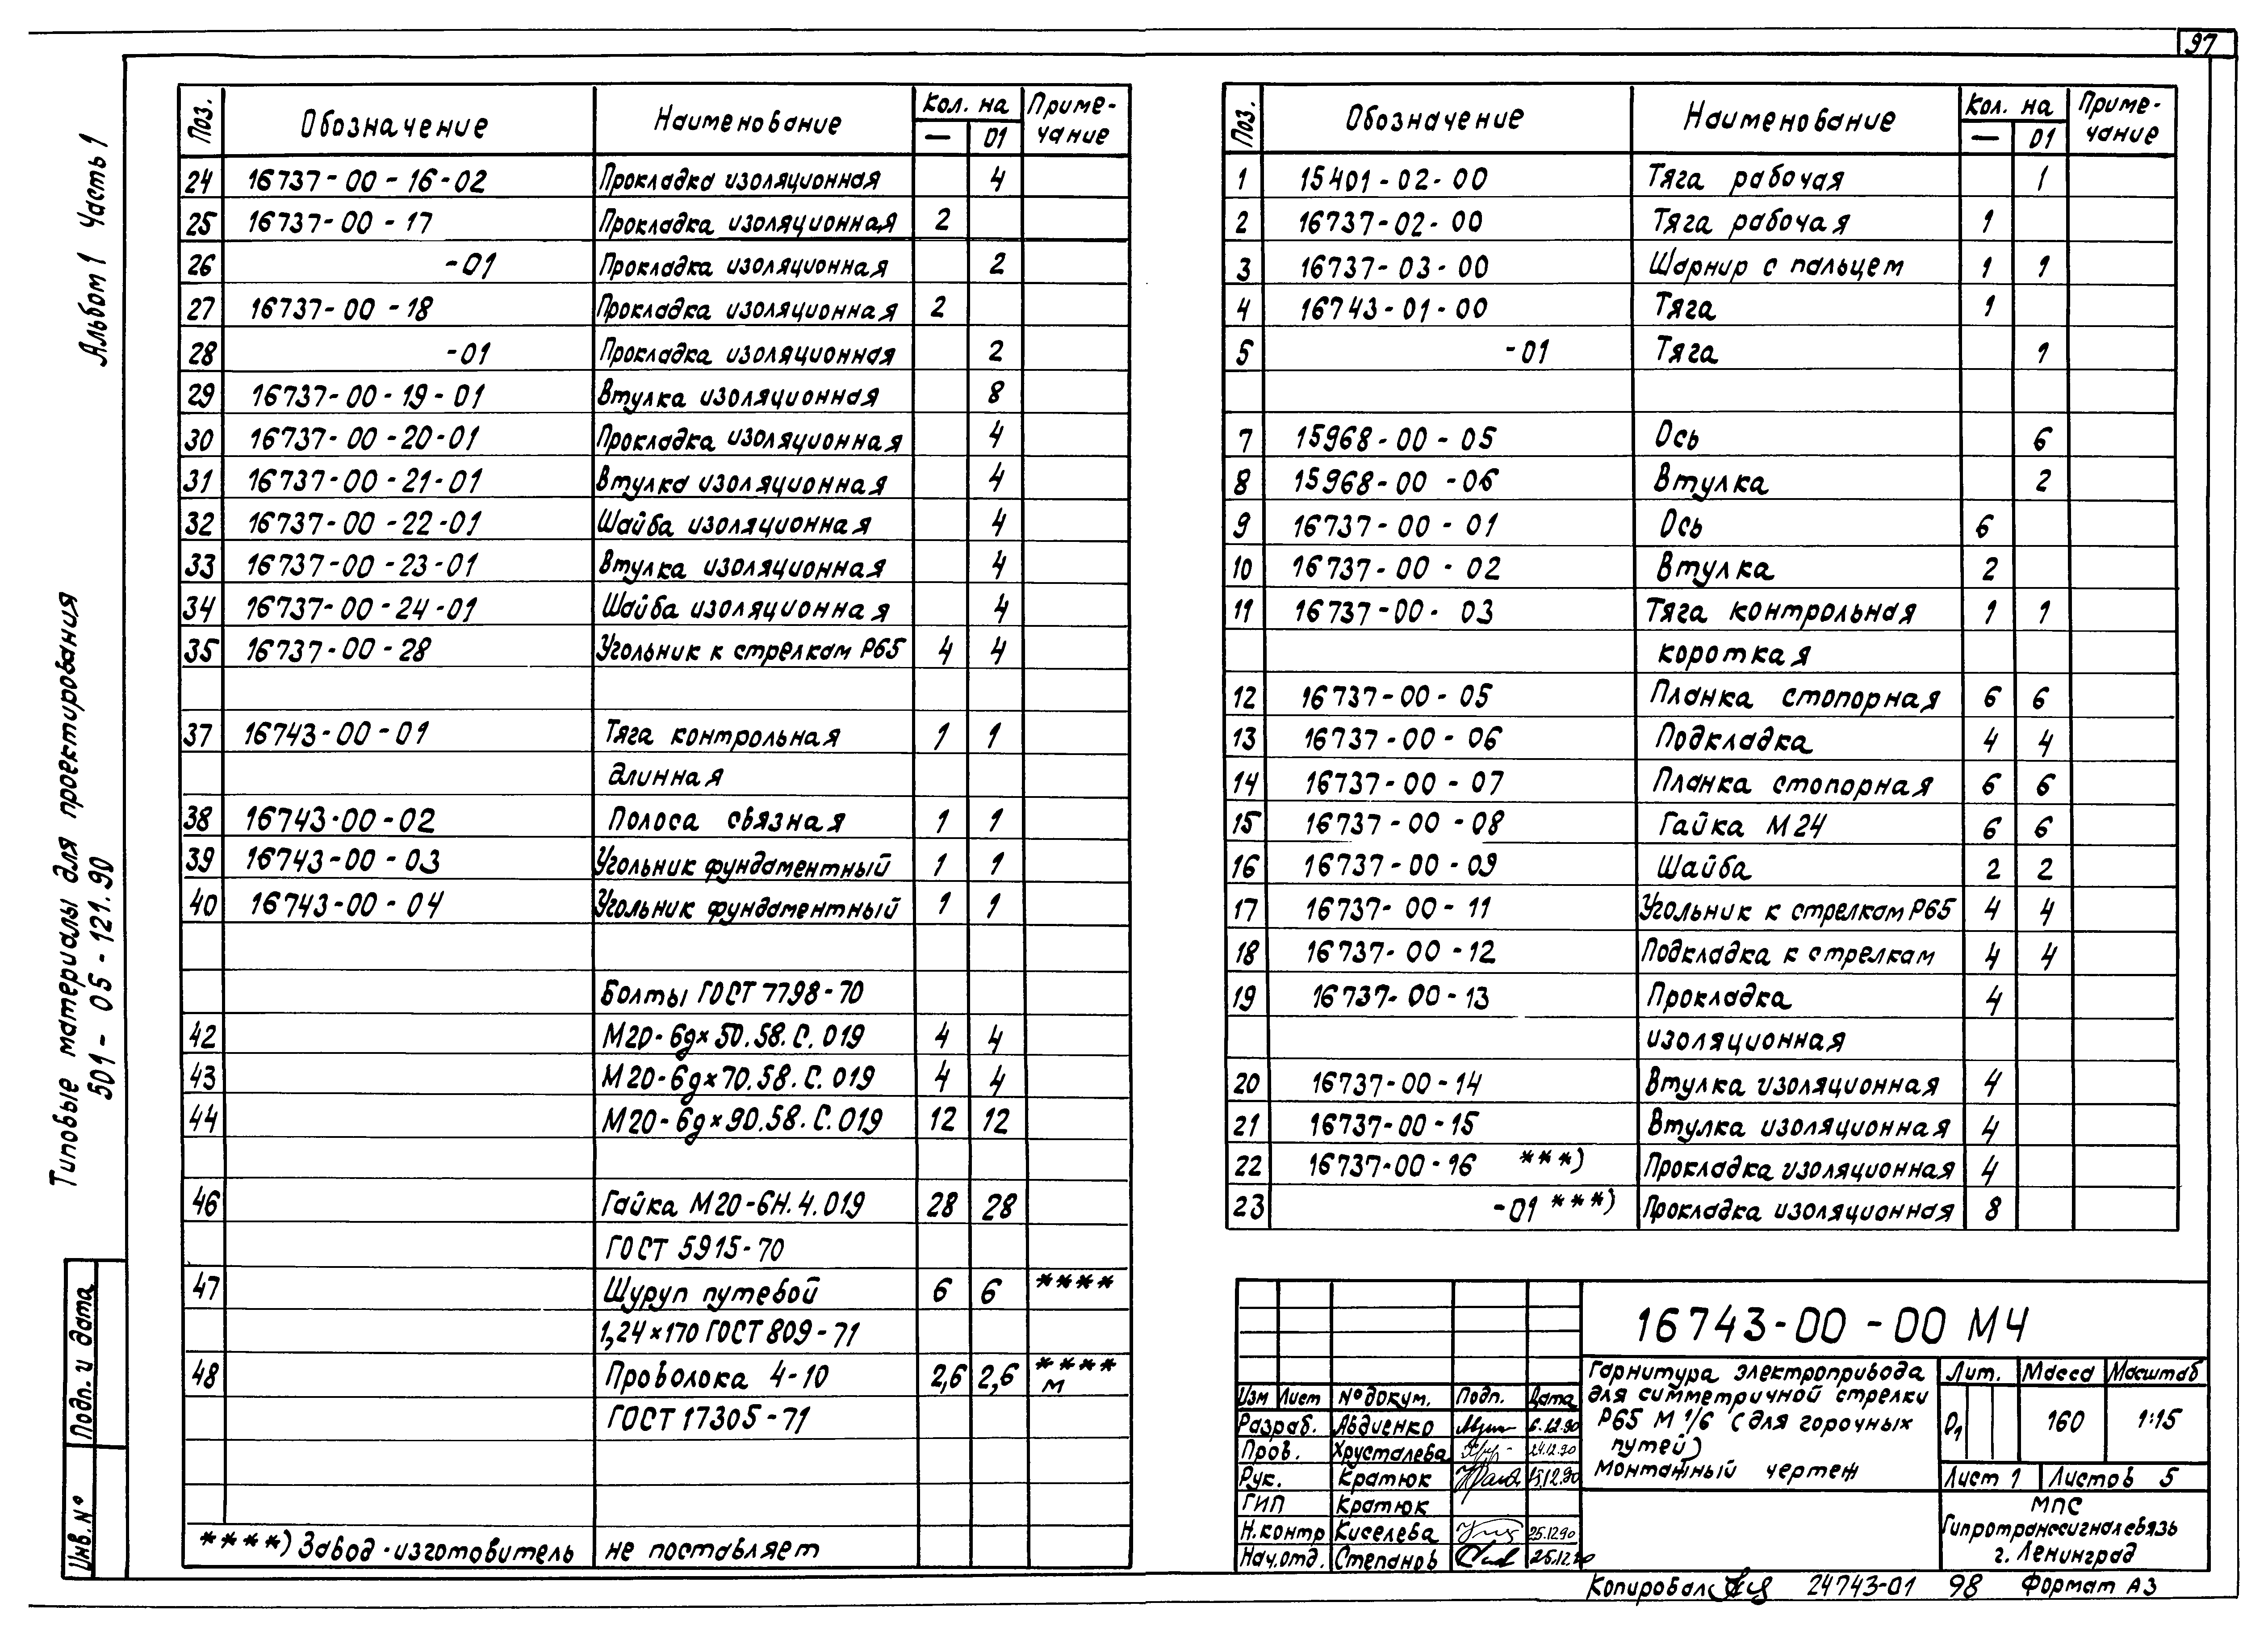 97
Альбом 1 Часть 1
Типовые материалы для проектирования
501-05-121.90
Подп. и дата
Инв. №
Поз. Обозначение Наименование Кол. на Приме-
— 01 чание
24 16737-00-16-02 Прокладка изоляционная 4
25 16737-00-17 Прокладка изоляционная 2
26 -01 Прокладка изоляционная 2
27 16737-00-18 Прокладка изоляционная 2
28 -01 Прокладка изоляционная 2
29 16737-00-19-01 Втулка изоляционная 8
30 16737-00-20-01 Прокладка изоляционная 4
31 16737-00-21-01 Втулка изоляционная 4
32 16737-00-22-01 Шайба изоляционная 4
33 16737-00-23-01 Втулка изоляционная 4
34 16737-00-24-01 Шайба изоляционная 4
35 16737-00-28 Угольник к стрелкам Р65 4 4
37 16743-00-01 Тяга контрольная 1 1
длинная
38 16743-00-02 Полоса связная 1 1
39 16743-00-03 Угольник фундаментный 1 1
40 16743-00-04 Угольник фундаментный 1 1
Болты ГОСТ 7798-70
42 М20-6g×50.58.С.019 4 4
43 М20-6g×70.58.С.019 4 4
44 М20-6g×90.58.С.019 12 12
46 Гайка М20-6Н.4.019 28 28
ГОСТ 5915-70
47 Шуруп путевой 6 6 ****
1,24×170 ГОСТ 809-71
48 Проволока 4-10 2,6 2,6 **** м
ГОСТ 17305-71
****) Завод-изготовитель не поставляет
Поз. Обозначение Наименование Кол. на Приме-
— 01 чание
1 15401-02-00 Тяга рабочая 1
2 16737-02-00 Тяга рабочая 1
3 16737-03-00 Шарнир с пальцем 1 1
4 16743-01-00 Тяга 1
5 -01 Тяга 1
7 15968-00-05 Ось 6
8 15968-00-06 Втулка 2
9 16737-00-01 Ось 6
10 16737-00-02 Втулка 2
11 16737-00-03 Тяга контрольная 1 1
короткая
12 16737-00-05 Планка стопорная 6 6
13 16737-00-06 Подкладка 4 4
14 16737-00-07 Планка стопорная 6 6
15 16737-00-08 Гайка М24 6 6
16 16737-00-09 Шайба 2 2
17 16737-00-11 Угольник к стрелкам Р65 4 4
18 16737-00-12 Подкладка к стрелкам 4 4
19 16737-00-13 Прокладка 4
изоляционная
20 16737-00-14 Втулка изоляционная 4
21 16737-00-15 Втулка изоляционная 4
22 16737-00-16 ***) Прокладка изоляционная 4
23 -01 ***) Прокладка изоляционная 8
16743-00-00 МЧ
Гарнитура электропривода
для симметричной стрелки
Р65 М 1/6 (для горочных
путей)
Монтажный чертеж
Лит. Масса Масштаб
Р1 160 1:15
Лист 1 Листов 5
МПС
Гипротранссигналсвязь
г. Ленинград
Изм Лист № докум. Подп. Дата
Разраб. Авдиенко 6.12.90
Пров. Хрусталева 24.12.90
Рук. Кратюк 15.12.90
ГИП Кратюк
Н.контр Киселева 25.12.90
Нач.отд. Степанов 25.12.90
Копировал 24743-01 98 Формат А3